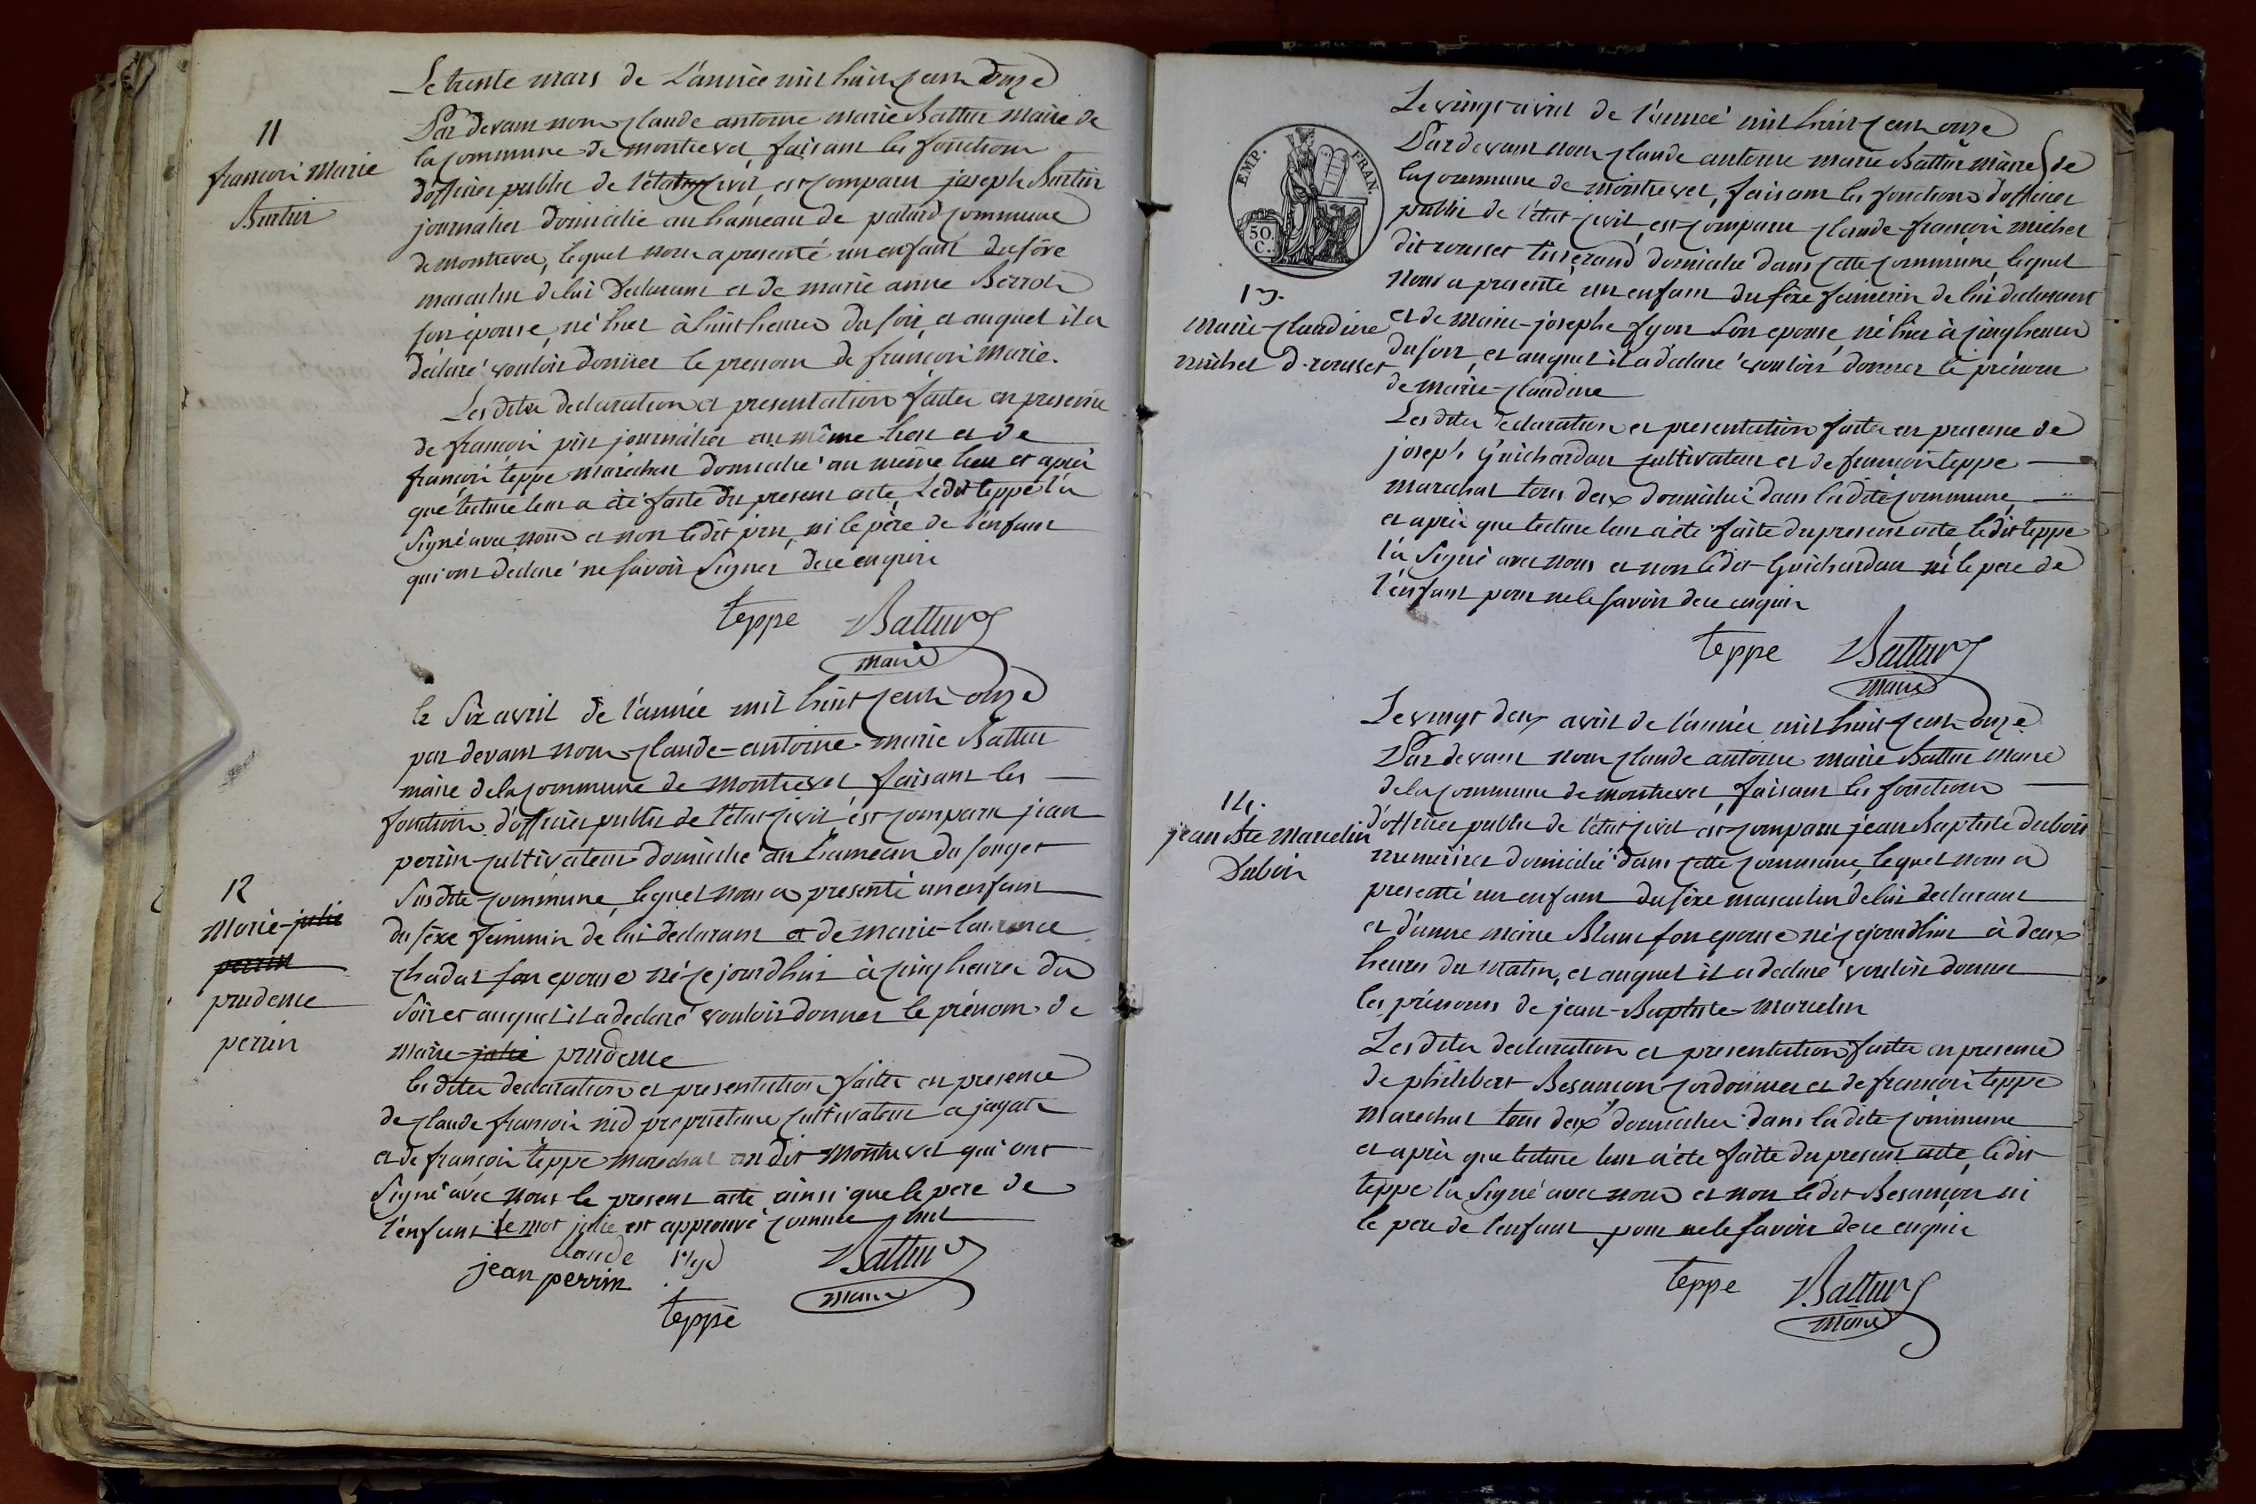 Le trente mars de L'année mil huit cent onze
11
francois Marie
Burtin
Par devant nous claude antoine marie Battur maire de
la commune de montrevel, faisant les fonctions
d'officier public de l'état civil, est comparu joseph Burtin
journalier domicilié au hameau de commune
de montrevel, lequel nous a presenté un enfant du séxe
masculin de lui Declarant et de marie anne
son épouse, né hier à huit heures du soir, et auquel il a
déclaré vouloir donner le prenom de françois Marie.
Les dites declaration et presentation faites en presence
de françois journalier au même lieu et de
françois teppe maréchal domicilié au même lieu et après
que lecture leur a été faite du present acte, Le dit teppe l'a
signé avec nous et non le dit ni le père de l'enfant
qui ont déclaré ne savoir signer de ce enquis
teppe Battur
maire
le Six avril de l'année mil huit cent onze
par devant nous claude-antoine-marie Battur
maire de la commune de montrevel faisant les
fonctions d'officier public de l'état civil est comparu jean
perrin cultivateur domicilié au hameau du souget
12
Marie-julie
perrin
prudence
perrin
susdite commune, lequel nous a presenté un enfant
du séxe féminin de lui declarant et de marie-laurence
chadat son epouse né cejourdhui à cinq heures du
soir et auquel il a declaré vouloir donner le prénom de
marie-julie prudence
les dites declaration et presentation faites en presence
de claude françois nid proprietaire cultivateur a jayat
et de françois teppe marechal au dit montrevel qui ont
signé avec nous le present acte ainsi que le pere de
l'enfant le mot julie est approuvé comme nul
claude Nyd Battur
jean perrin maire
teppe
Le vingt avril de l'année mil huit cent onze
EMP. FRAN.
50.
C.
Par devant nous claude antoine marie Battur maire de
la commune de montrevel, faisant les fonctions d'officier
public de l'état-civil, est comparu claude-françois michel
dit rousset tisserand domicilié dans cette commune, lequel
nous a presenté un enfant du séxe féminin de lui declarant
13.
Marie-claudine
michel d. rousset
et de Marie-josephe fyon son epouse, né hier à cinq heures
du soir, et auquel il a déclaré vouloir donner le prénom
de marie-claudine
Les dites declaration et presentation faites en presence de
joseph Guichardan cultivateur et de françois teppe
marechal tous deux domiciliés dans la dite commune,
et après que lecture leur a été faite du present acte, le dit teppe
l'a signé avec nous et non le dit Guichardan ni le pere de
l'enfant pour ne le savoir de ce enquis
teppe Battur
maire
Le vingt deux avril de l'année mil huit cent-onze
Par devant nous claude antoine marie Battur maire
de la commune de montrevel, faisant les fonctions
14.
jean Bte Marcelin
Dubois
d'officier public de l'état civil est comparu jean Baptiste dubois
domicilié dans cette commune, lequel nous a
presenté un enfant du séxe masculin de lui declarant
et d'anne marie Blanc son epouse né cejourdhui à deux
heures du matin, et auquel il a declaré vouloir donner
les prénoms de jean-Baptiste-marcelin
Les dites declaration et presentation faites en presence
de philibert Besançon cordonnier et de françois teppe
marechal tous deux domiciliés dans la dite commune
et après que lecture leur a été faite du present acte, le dit
teppe l'a signé avec nous et non le dit Besançon ni
le pere de l'enfant, pour ne le savoir de ce enquis
teppe Battur
maire